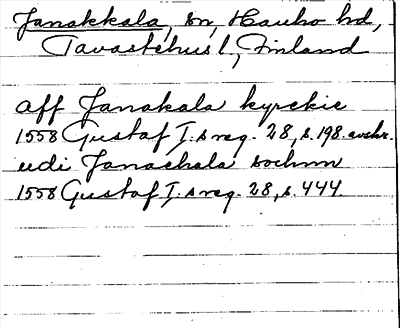 Janakkala, sn, Hauho hd,
Tavastehus l, Finland
aff Janakala kyrckie
1558 Gustaf I:s reg. 28, s. 198. avskr.
udi Janachala sochnn
1558 Gustaf I:s reg. 28, s. 444.